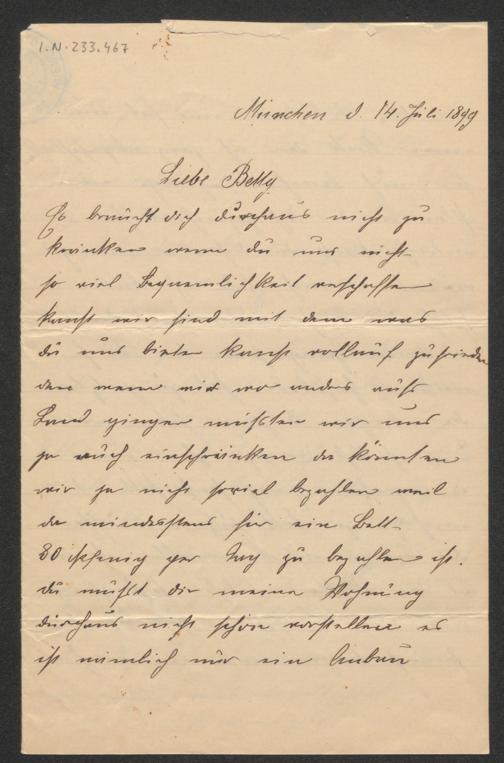 I.N. 233.467
München d. 14. Juli 1899
Liebe Betty
Es braucht dich durchaus nicht zu
kränken wenn du uns nicht
so viel Bequemlichkeit verschaffen
kanst wir sind mit dem was
du uns bieten kanst vollauf zufrieden
den wenn wir wo anders aufs
Land gingen müssten wir uns
ja auch einschränken da könnten
wir ja nicht soviel bezahlen weil
da mindesstens für ein Bett
80 Pfenig per Tag zu bezahlen ist.
du musst dir meine Wohnung
durchaus nicht schön vorstellen es
ist nämlich nur ein Anbau